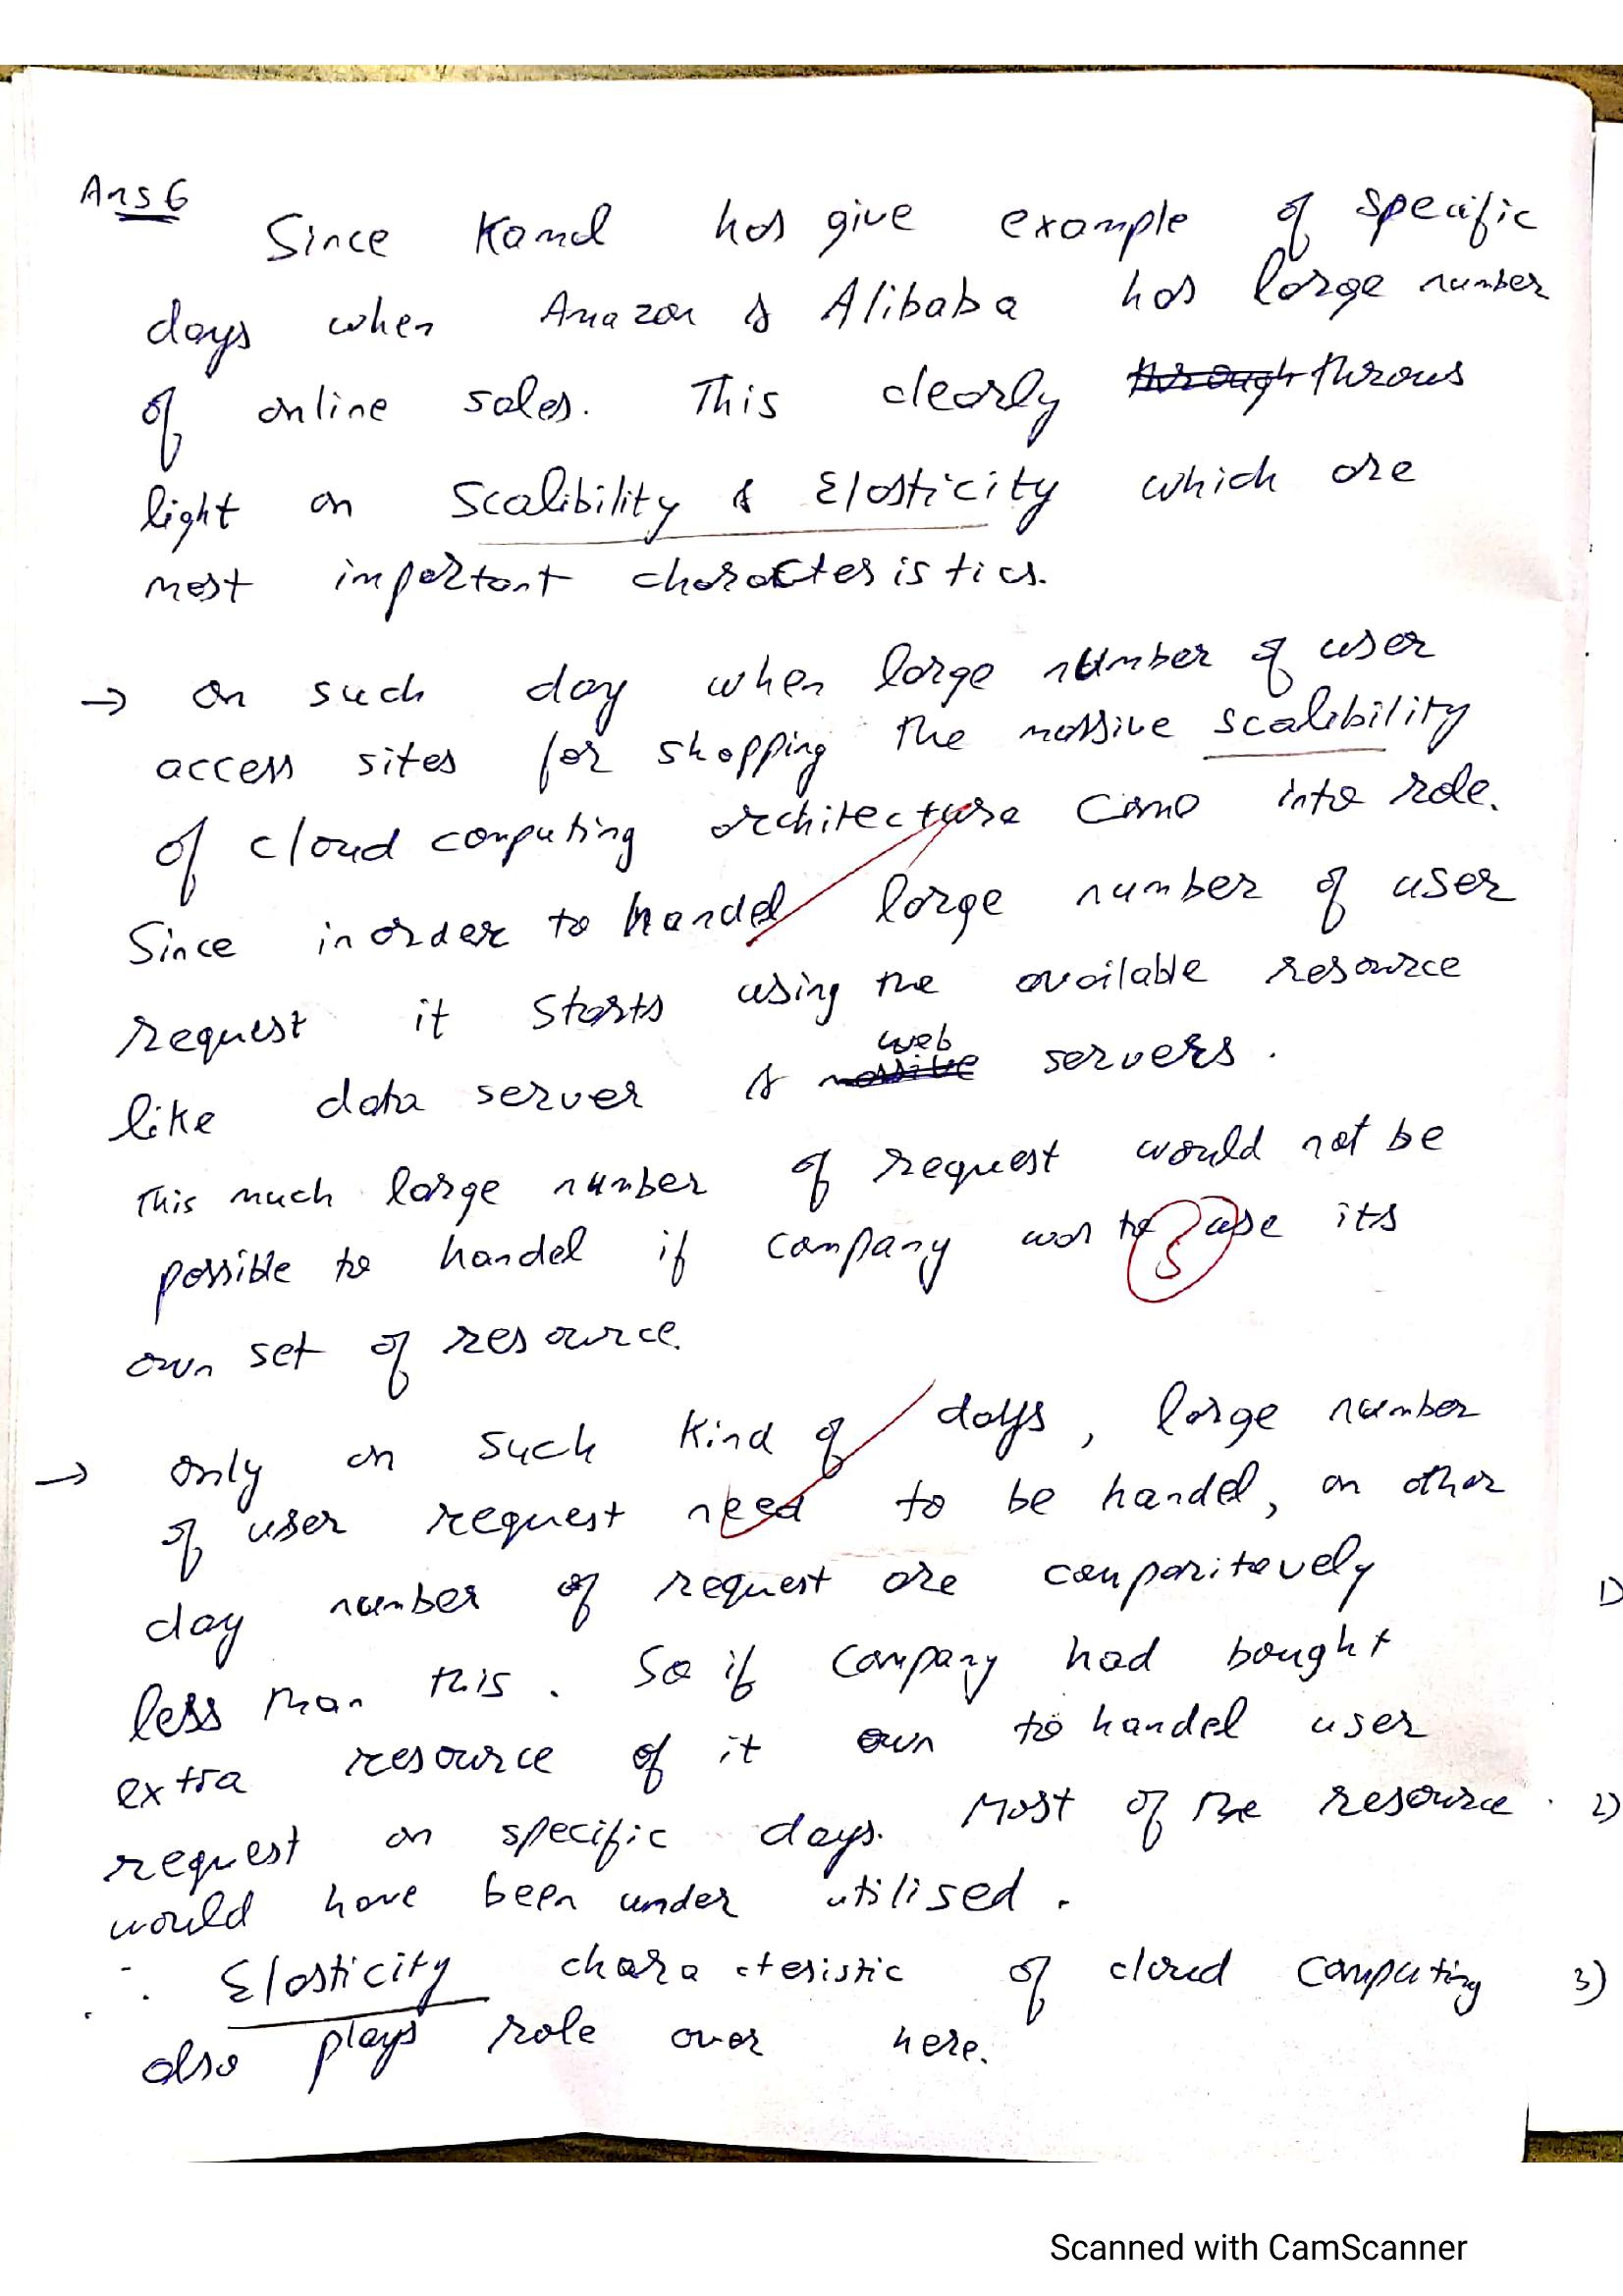 Ans 6
Since Kamal has give example of specific
days when Amazon & Alibaba has large number
of online sales. This clearly through throws
light on Scalibility & Elasticity which are
most important characteristics.
→ on such day when large number of user
access sites for shopping the massive scalibility
of cloud computing architecture come into role.
Since inorder to handel large number of user
request it starts using the available resource
web
like data server & massive servers.
This much large number of request would not be
possible to handel if company was to use its
5
own set of resource.
→ only on such kind of days, large number
of user request need to be handel, on other
day number of request are comparitavely
1)
less than this. So if company had bought
extra resource of it own to handel user
request on specific days. Most of the resource
2)
would have been under utilised.
∴ Elasticity characteristic of cloud computing
3)
also plays role over here.
Scanned with CamScanner